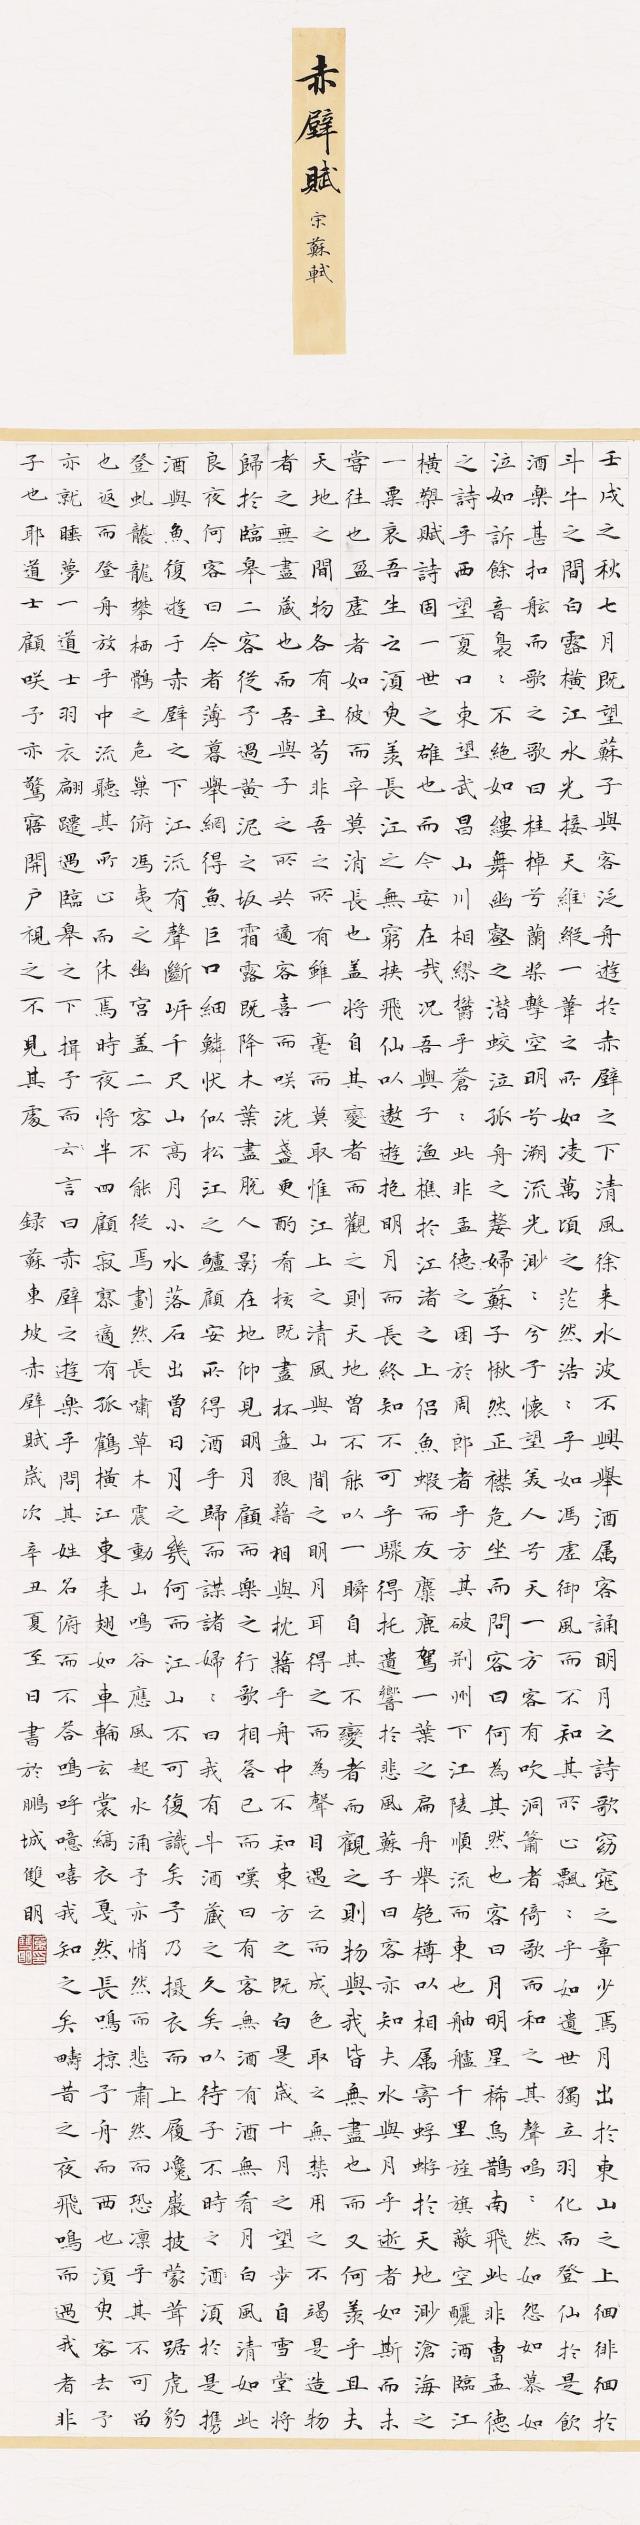 赤壁賦
宗蘇軾
壬戌之秋七月既望蘇子與客泛舟遊於赤壁之下清風徐来水波不興舉酒属客誦明月之詩歌窈窕之章少焉月出於東山之上徊徘徊於
斗牛之間白露橫江水光接天維縱一葦之所如凌萬頃之茫然浩〻乎如馮虛御風而不知其所止飄〻乎如遺世獨立羽化而登仙於是飲
酒樂甚扣舷而歌之歌曰桂棹兮蘭槳擊空明兮溯流光渺〻兮予懷望美人兮天一方客有吹洞簫者倚歌而和之其聲嗚〻然如怨如慕如
泣如訴餘音裊〻不絕如縷舞幽壑之潛蛟泣孤舟之嫠婦蘇子愀然正襟危坐而問客曰何為其然也客曰月明星稀烏鵲南飛此非曹孟德
之詩乎西望夏口東望武昌山川相繆欝乎蒼〻此非孟德之困於周郎者乎方其破荊州下江陵順流而東也舳艫千里旌旗蔽空釃酒臨江
橫槊賦詩固一世之雄也而今安在哉況吾與子漁樵於江渚之上侣魚蝦而友麋鹿駕一葉之扁舟舉匏樽以相属寄蜉蝣於天地渺滄海之
一粟哀吾生之湏臾羨長江之無窮挟飛仙以遨遊抱明月而長終知不可乎驟得托遺響於悲風蘇子曰客亦知夫水與月乎逝者如斯而未
嘗往也盈虛者如彼而卒莫消長也盖將自其變者而觀之則天地曾不能以一瞬自其不變者而觀之則物與我皆無盡也而又何羨乎且夫
天地之間物各有主苟非吾之所有雖一毫而莫取惟江上之清風與山間之明月耳得之而為聲目遇之而成色取之無禁用之不竭是造物
者之無盡藏也而吾與子之所共適客喜而咲洗盞更酌肴核既盡杯盘狼藉相與枕藉乎舟中不知東方之既白是歳十月之望步自雪堂將
歸於臨皋二客從予過黃泥之坂霜露既降木葉盡脫人影在地仰見明月顧而樂之行歌相答已而嘆曰有客無酒有酒無肴月白風清如此
良夜何客曰今者薄暮舉網得魚巨口細鱗状似松江之鱸顧安所得酒乎歸而謀諸婦〻曰我有斗酒藏之久矣以待子不時之酒湏於是携
酒與魚復遊于赤壁之下江流有聲斷岍千尺山高月小水落石出曾日月之幾何而江山不可復識矣予乃摄衣而上履巉巖披蒙茸踞虎豹
登虬龍龍攀栖鶻之危巢俯馮夷之幽宮盖二客不能從焉劃然長嘯草木震動山鳴谷應風起水涌予亦悄然而悲肅然而恐凛乎其不可畄
也返而登舟放乎中流聽其所止而休焉時夜將半四顧寂寥適有孤鶴橫江東来翅如車輪玄裳縞衣戛然長鳴掠予舟而西也湏臾客去予
亦就睡夢一道士羽衣翩躚過臨皋之下揖予而云言曰赤壁之遊樂乎問其姓名俯而不答嗚呼噫嘻我知之矣疇昔之夜飛鳴而過我者非
子也耶道士顧咲予亦驚寤開户視之不見其處 録蘇東坡赤壁賦歳次辛丑夏至日書於鵬城雙明